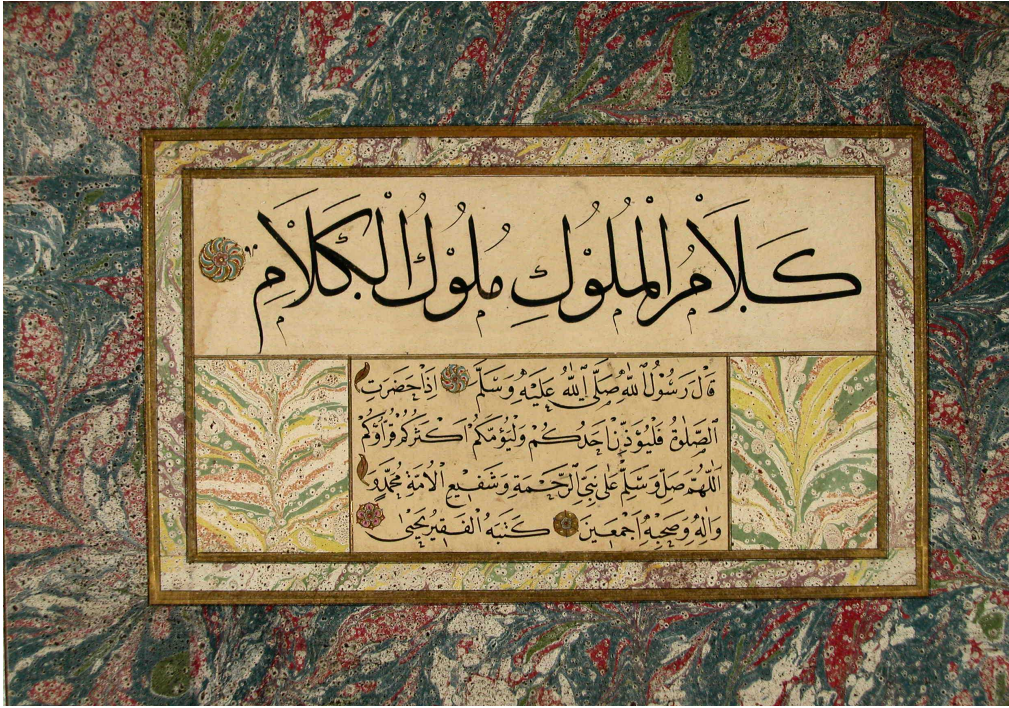 كَلَامُ الْمُلُوْكِ مُلُوْكُ الْكَلَامِ
قَالَ رَسُوْلُ اللهِ صَلَّى اللهُ عَلَيْهِ وَسَلَّمَ اِذَا حَضَرَتِ
الصَّلٰوةُ فَلْيُؤَذِّنْ اَحَدُكُمْ وَلْيَؤُمَّكُمْ اَكْثَرُكُمْ قُرْآؤُكُمْ
اَللّٰهُمَّ صَلِّ وَسَلِّمْ عَلٰى نَبِيِّ الرَّحْمَةِ وَشَفِيْعِ الْاُمَّةِ مُحَمَّدٍ
وَاٰلِهِ وَصَحْبِهِ اَجْمَعِيْنَ كَتَبَهُ الْفَقِيْرُ يَحْيٰى